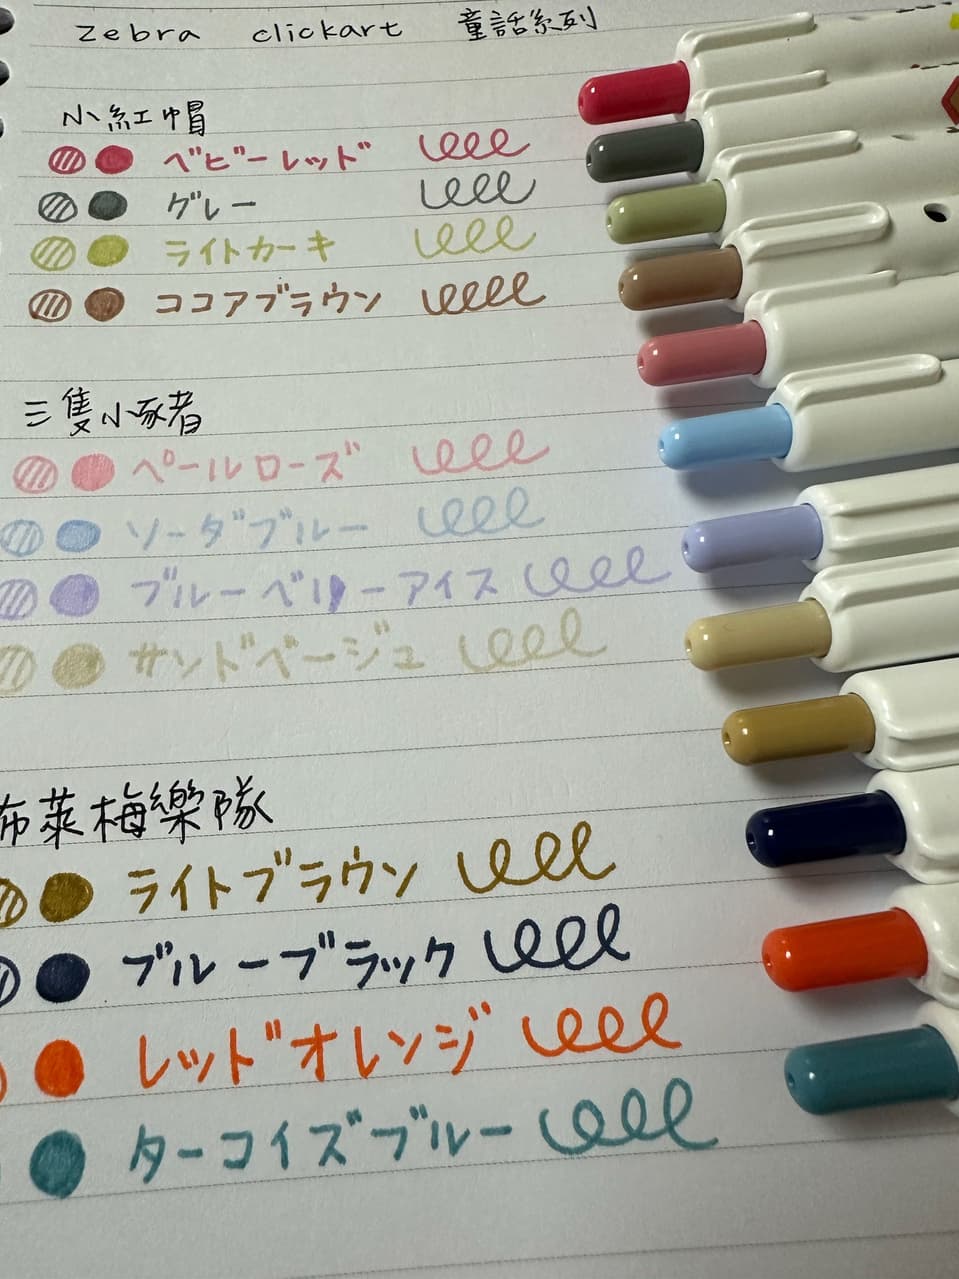 zebra clickart 童話系列
小紅帽
ベビーレッド
グレー
ライトカーキ
ココアブラウン
三隻小豬
ペールローズ
ソーダブルー
ブルーベリーアイス
サンドベージュ
布萊梅樂隊
ライトブラウン
ブルーブラック
レッドオレンジ
ターコイズブルー